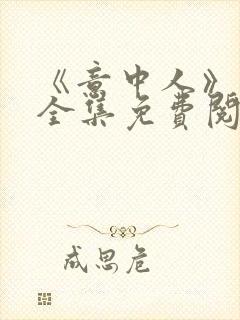 《意中人》
全集免费阅
成思危